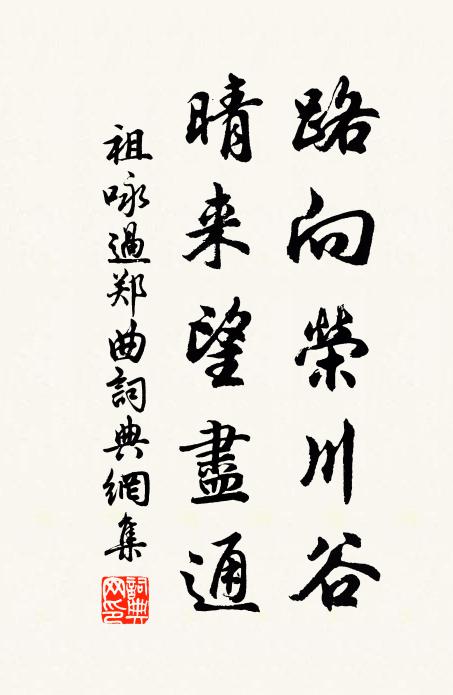 路向榮川谷
晴来望盡通
祖咏過郑曲詞典網集
詞典网印